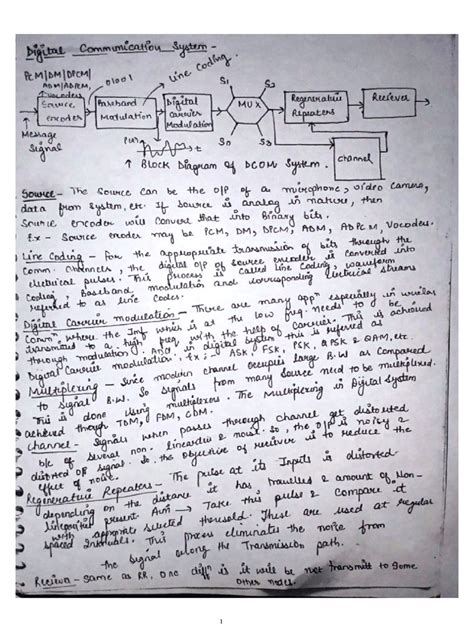 Digital Communication System -
PCM/DM/DPCM/
ADM/ADPCM,
vocoders
01001
Line Coding.
Source
encoders
Baseband
Modulation
Digital
Carrier
Modulation
S1
S2
MUX
S3
S4
Regenerative
Repeaters
Reciever
Channel
Message
Signal
t
↑ Block Diagram of DCOM System.
Source - The Source can be the O/P of a microphone, video camera,
data from system, etc. If Source is analog in nature, then
Source encoder will Convert that into Binary bits.
Ex - Source encoder may be PCM, DM, DPCM, ADM, ADPCM, Vocoders.
Line Coding - For the appropriate transmission of bits through the
Comm. Channels, the digital O/P of Source encoder is converted into
electrical pulses. This process is called Line Coding, waveform
Coding, Baseband modulation and corresponding electrical streams
referred to as line Codes.
Digital Carrier modulation - There are many appn especially in wireless
Commn where the Inf which is at the low freq. needs to be
transmitted to a high freq with the help of carrier. This is achieved
through modulation. And in digital system this is referred as
Digital Carrier modulation. Ex; ASK, FSK, PSK, QPSK & QAM, etc.
Multiplexing - Since modern channel occupies large B.W as Compared
to Signal B.W. So signals from many source need to be multiplexed.
This is done using multiplexers. The Multiplexing in Digital System
achieved though TDM, FDM, CDM.
Channel - Signals when passes through channel get distorted
b/c of several non-linearities & noise. So, the O/P is noisy &
distorted O/P signal. So the objective of reciever is to reduce the
effect of noise.
Regenerative Repeaters - The pulse at its Inputs is distorted
depending on the distance it has travelled & amount of Non-
present Aim → Take this pulse & Compare it
with appropriate selected threshold. These are used at regular
spaced Intervals. This process eliminates the noise from
the signal along the Transmission path.
Reciever - Same as RR, One diffn is it will be not transmit to Some
Other nodes.
1